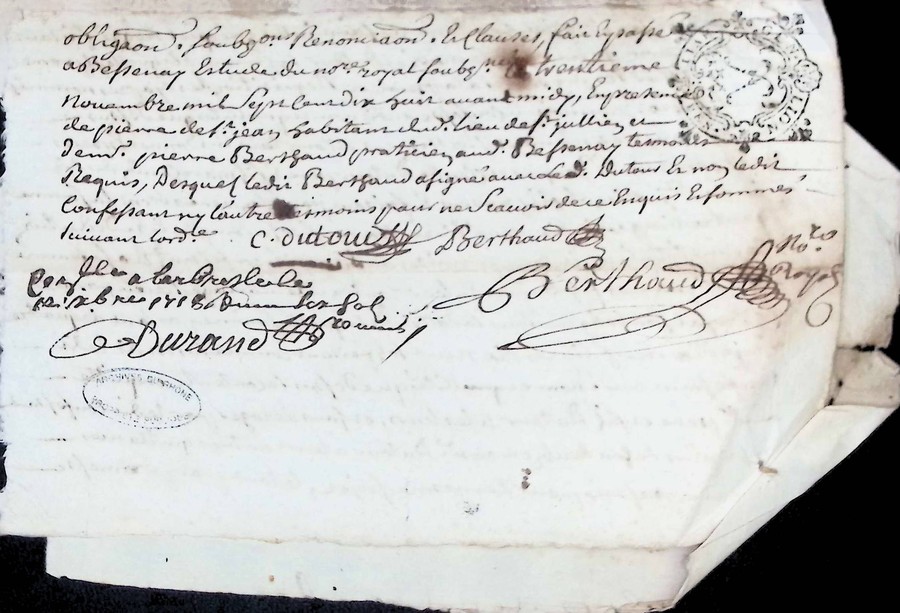 obligaon.s soubz.ons Renonciaon.s Et Clauses, fait Et passé
a Bessenay Estude du no.re royal soubz.né le trentieme
Nouembre mil Sept Cent dix huit auant midy, En presence
de pierre de S.t jean habitant du d. lieu de S.t jullien et
de m.e pierre Berthaud praticien au d. Bessenay tesmoins
Requis, Desquels ledit Berthaud a signé auec le d. Dutour Et non ledit
Confessant ny l'autre tesmoins pour ne Scauoir de ce Enquis Et sommés
suiuant lord.e C. Dutour Berthaud
Berthaud No.re Royal
a larbresle le
xbre 1718
Durand
ARCHIVES DU RHONE